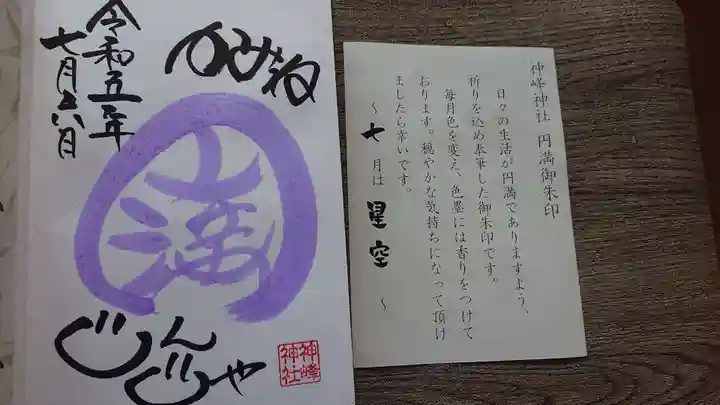 令和五年
七月五日
かみね
円満
じんじゃ
神峰
神社
神峰神社 円満御朱印
日々の生活が円満でありますよう、
祈りを込め奉筆した御朱印です。
毎月色を変え、色墨には香りをつけて
おります。穏やかな気持ちになって頂け
ましたら幸いです。
～七月は 星空 ～